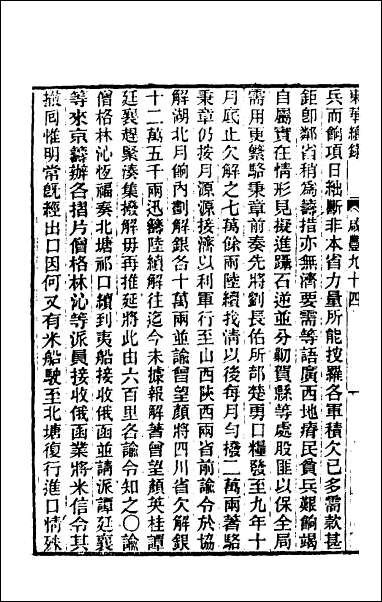 東華續錄 咸豐九十四
兵而餉項日絀斷非本省力量所能按羅各軍積欠已多需款甚
鉅卽鄰省稍爲籌措亦無濟要需等語廣西地瘠民貧兵艱餉竭
自屬實在情形見擬進躡石逆並分勦賀縣等處股匪以保全局
需用更繁駱秉章前奏先將劉長佑所部楚勇口糧發至九年十
月底止欠解之七萬餘兩陸續找清以後每月勻撥二萬兩著駱
秉章仍按月源源接濟以利軍行至山西陝西兩省前諭令於協
解湖北月餉內劃解銀各十萬兩並諭曾望顏將四川省欠解銀
十二萬五千兩迅籌陸續解往迄今未據報解著曾望顏英桂譚
廷襄趕緊湊集撥解毋再推延將此由六百里各諭令知之〇諭
僧格林沁恆福奏北塘祁口續到夷船接收俄函並請派譚廷襄
等來京籌辦各摺片僧格林沁等派員接收俄函業將米信令其
撤回惟明常旣經出口因何又有米船駛至北塘復行進口情殊